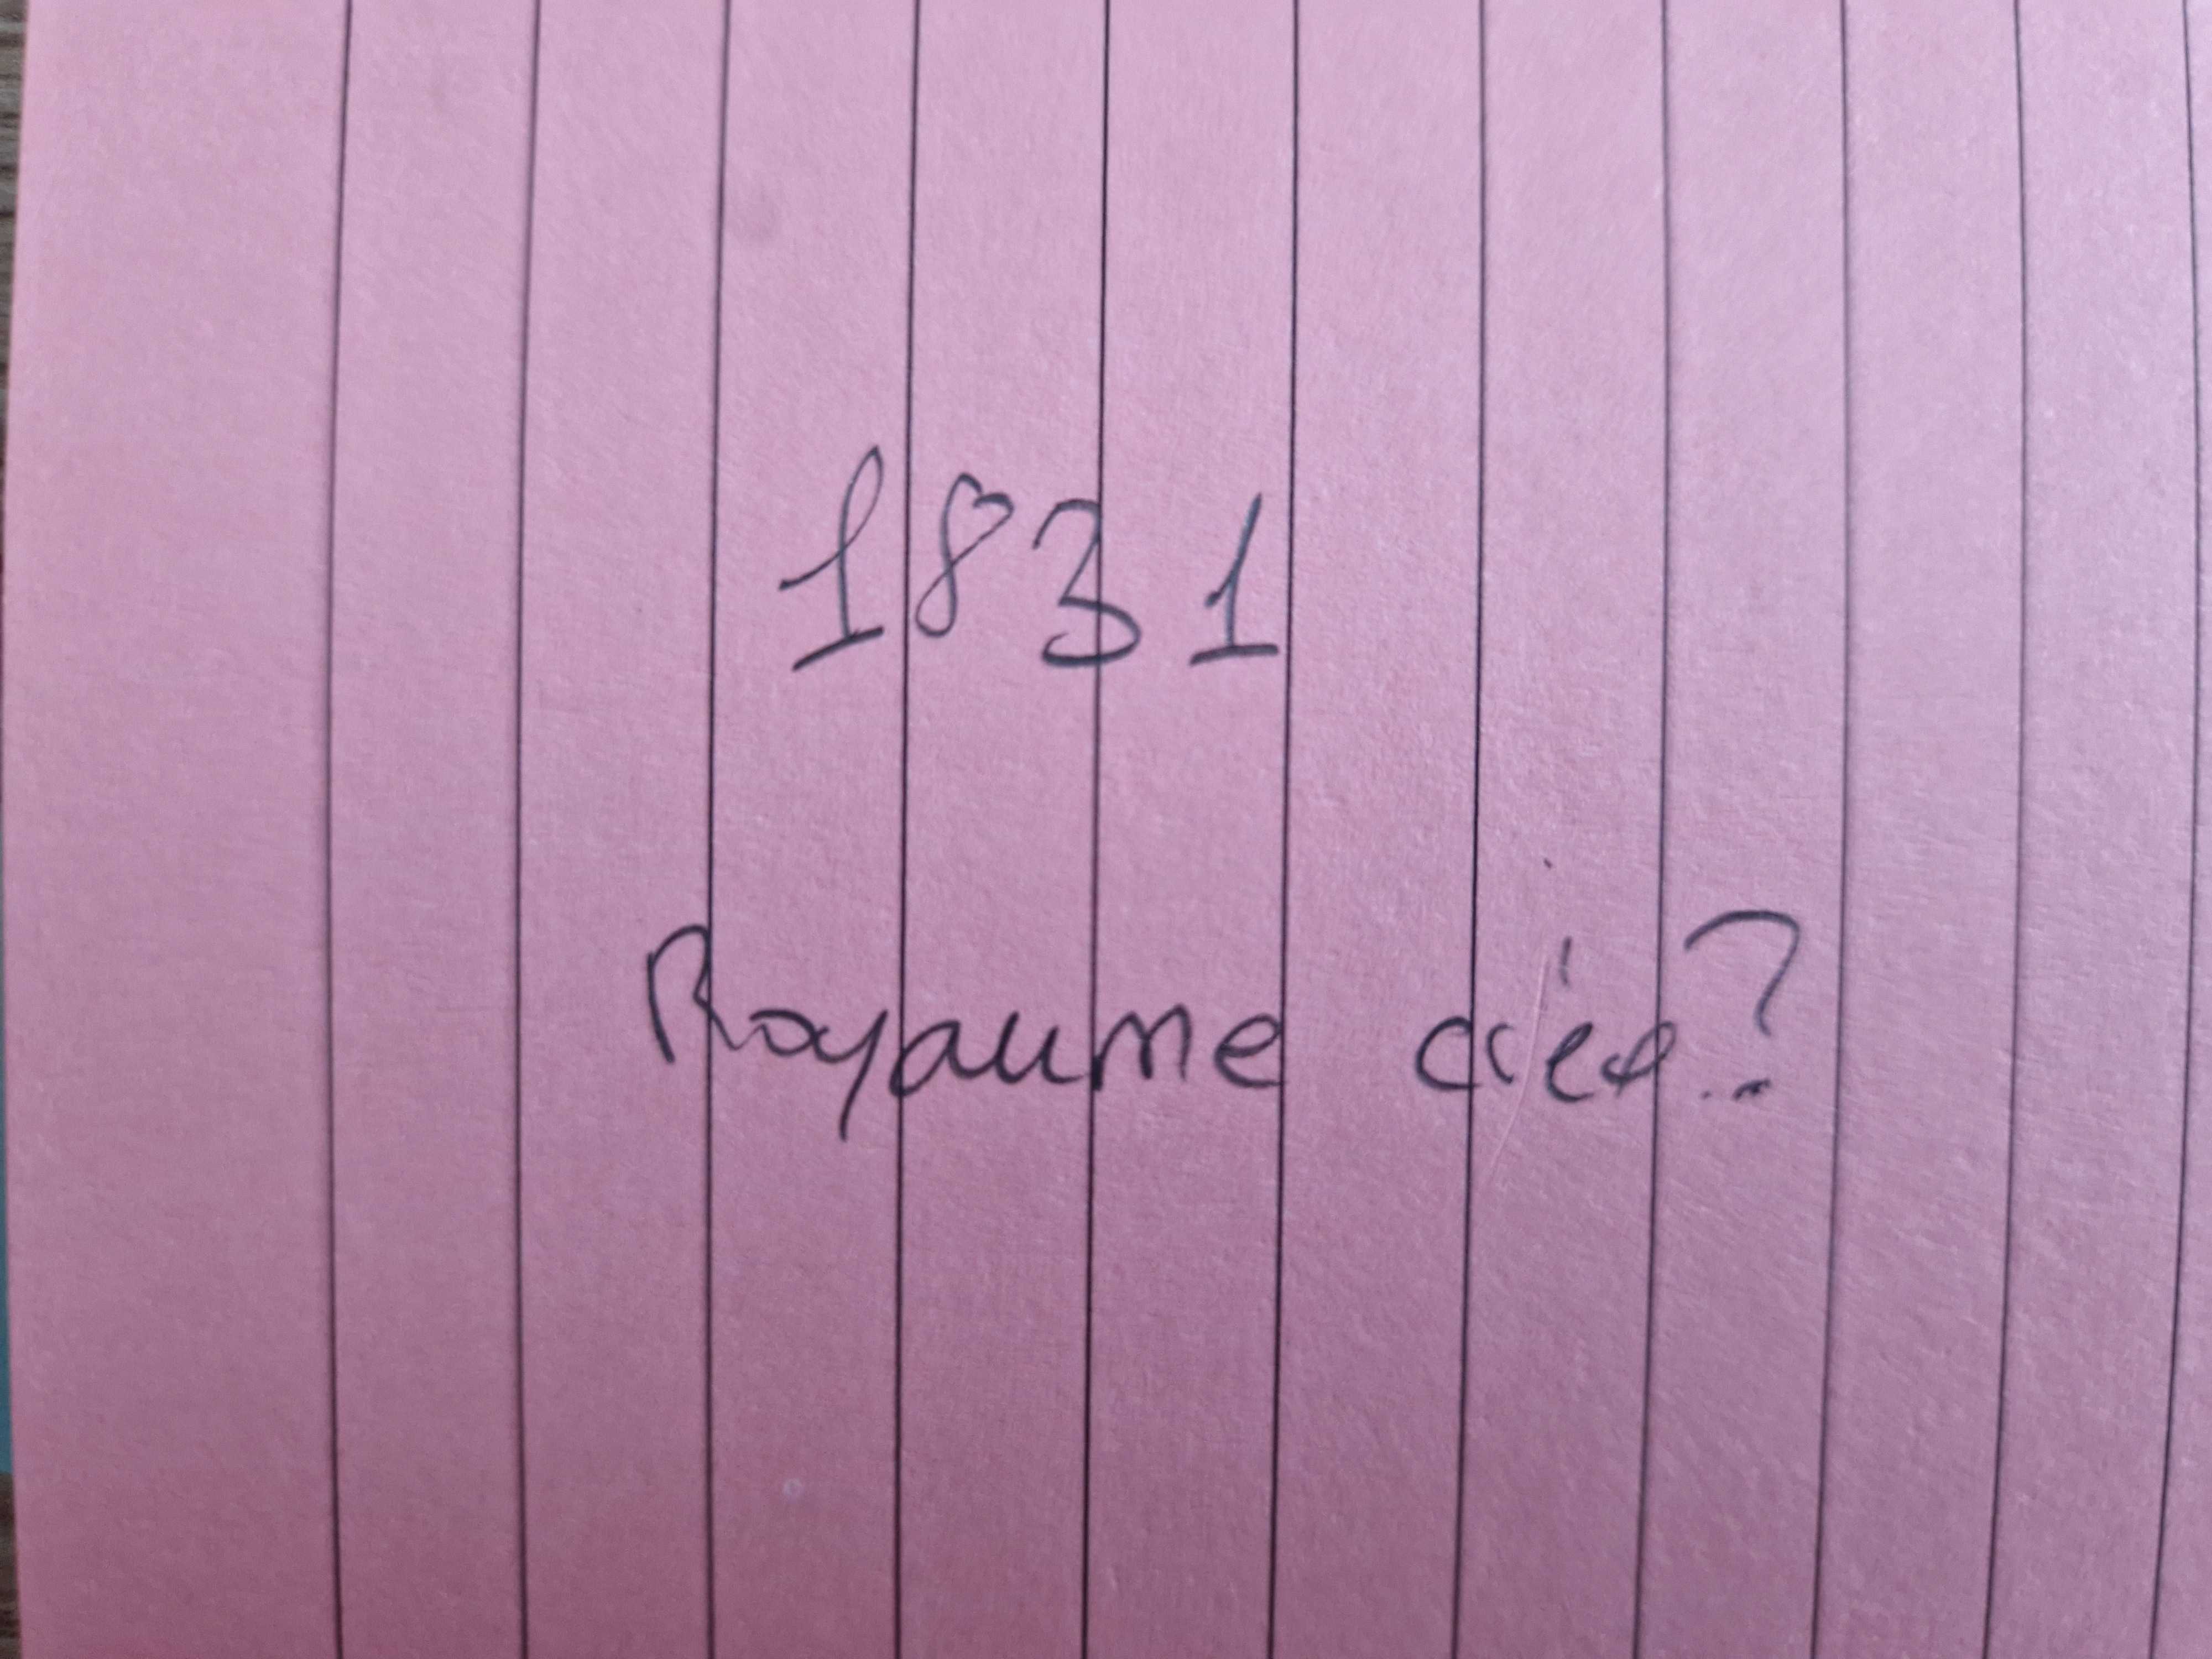 1831
Royaume créé?